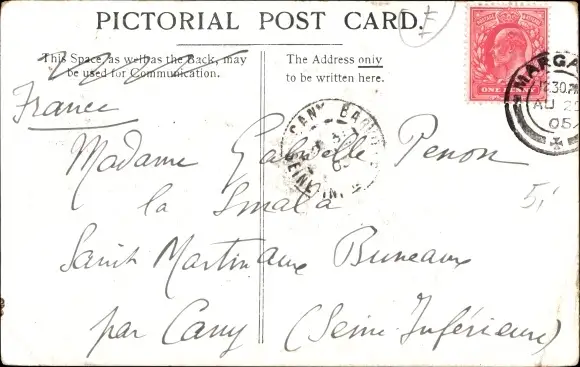 PICTORIAL POST CARD.
This Space, as well as the Back, may
be used for Communication.
The Address only
to be written here.
ONE PENNY
MARGA
AU 2
05
CANY
SEINE IN
France
Madame Gabrielle Penon
la Smala
5/
Saint Martin aux Buneaux
par Cany (Seine Inférieure)